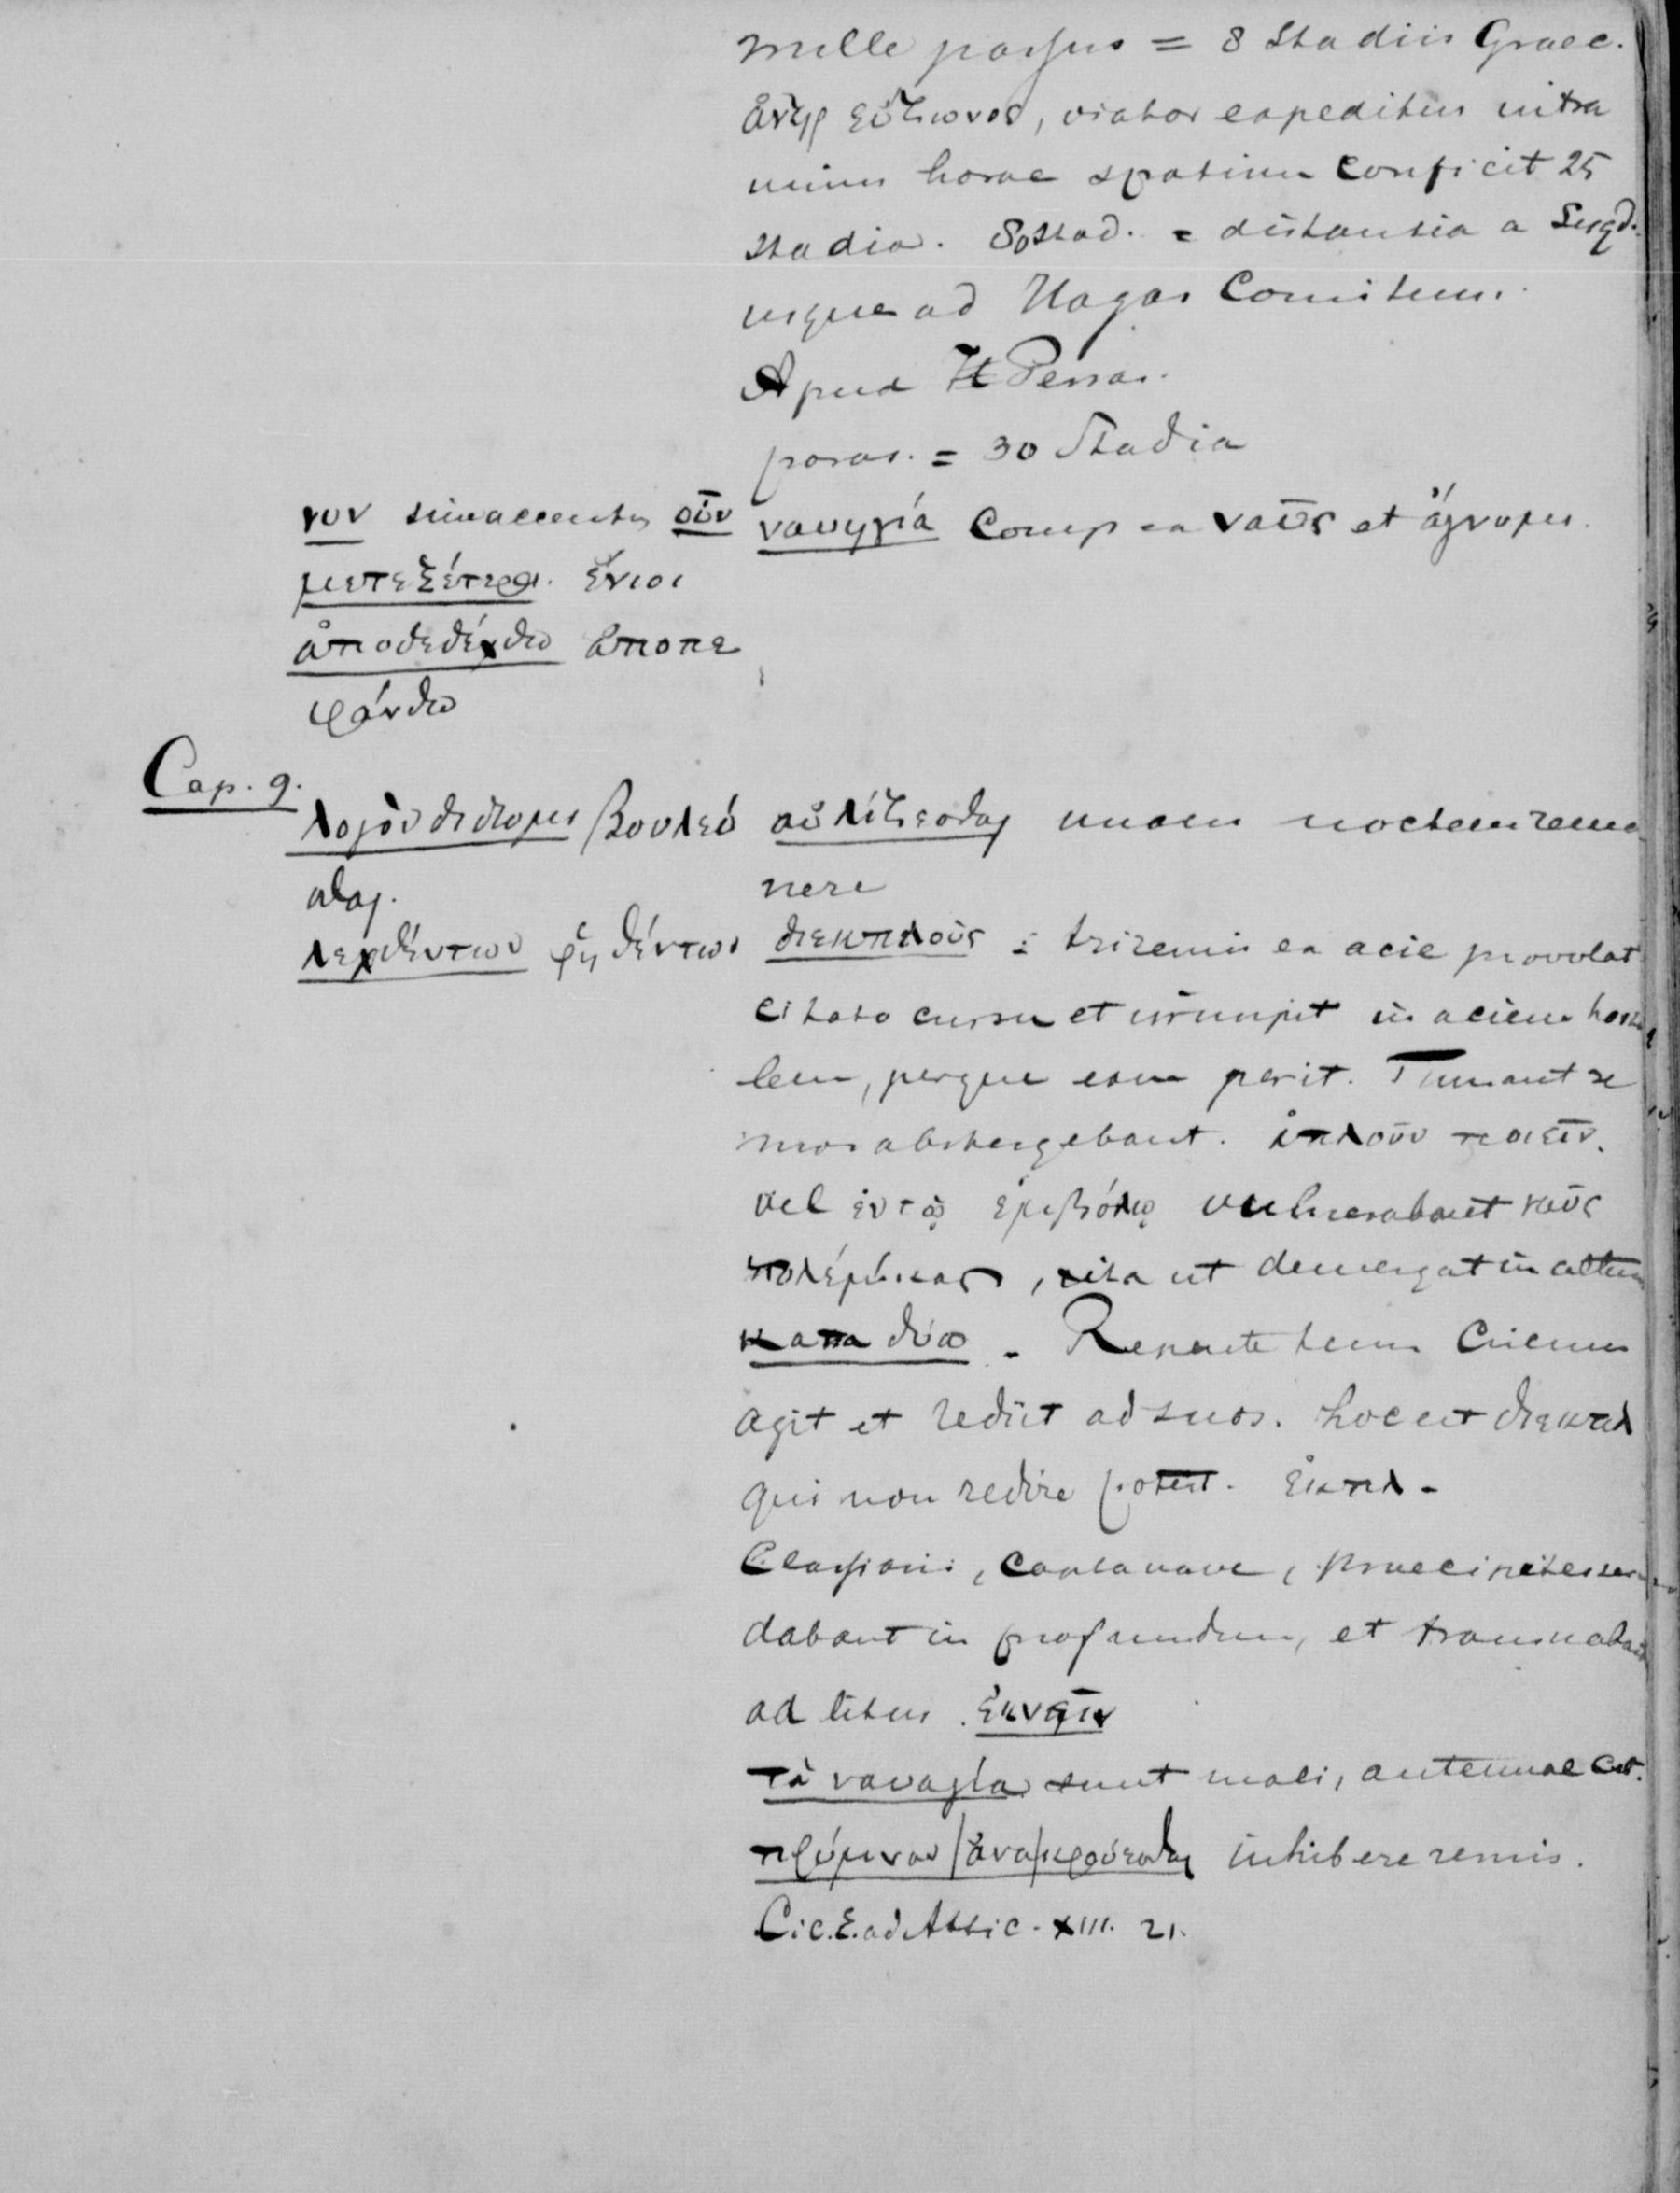 mille passus = 8 Stadiis Graec.
ἀνὴρ εὔζωνος, viator expeditus intra
unius horae spatium conficit 25
stadia. 80 stad. = distantia a Lugd.
usque ad Hagas Comitum.
Apud Persas.
paras. = 30 Stadia
νυν sine accentu οὖν
ναυηγία Comp ex ναῦς et ἄγνυμι.
μετεξέτεροι. ἔνιοι
ἀποδεδέχθω ἀποπε
φάνθω
Cap. 9.
λόγον δίδομι βουλεύ
σθαι.
λεχθέντων ῥηθέντων
αὐλίζεσθαι unam noctem rema
nere
διεκπλοῦς = triremis ex acie provolat
citato cursu et irrumpit in aciem hosti
lem, perque eam perit. Tum aut re
mos abstergebant. ἁπλοῦν ποιεῖν.
vel ἐν τῷ ἐμβόλῳ vulnerabant ναῦς
πολέμικας, ita ut demergat in altum
καταδύω. Repente tum
agit et rediit ad suos. hoc est διεκπλ
qui non redire potest. ἐκπλ.
Classiarii, capta nave, praecipites sese
dabant in profundum, et transnabant
ad litus. ἐκνεῖν
τὰ ναυάγια sunt mali, antennae cet.
πρύμναν |ἀνα|κρούεσθαι inhibere remis.
Cic. E. ad Attic. XIII. 21.